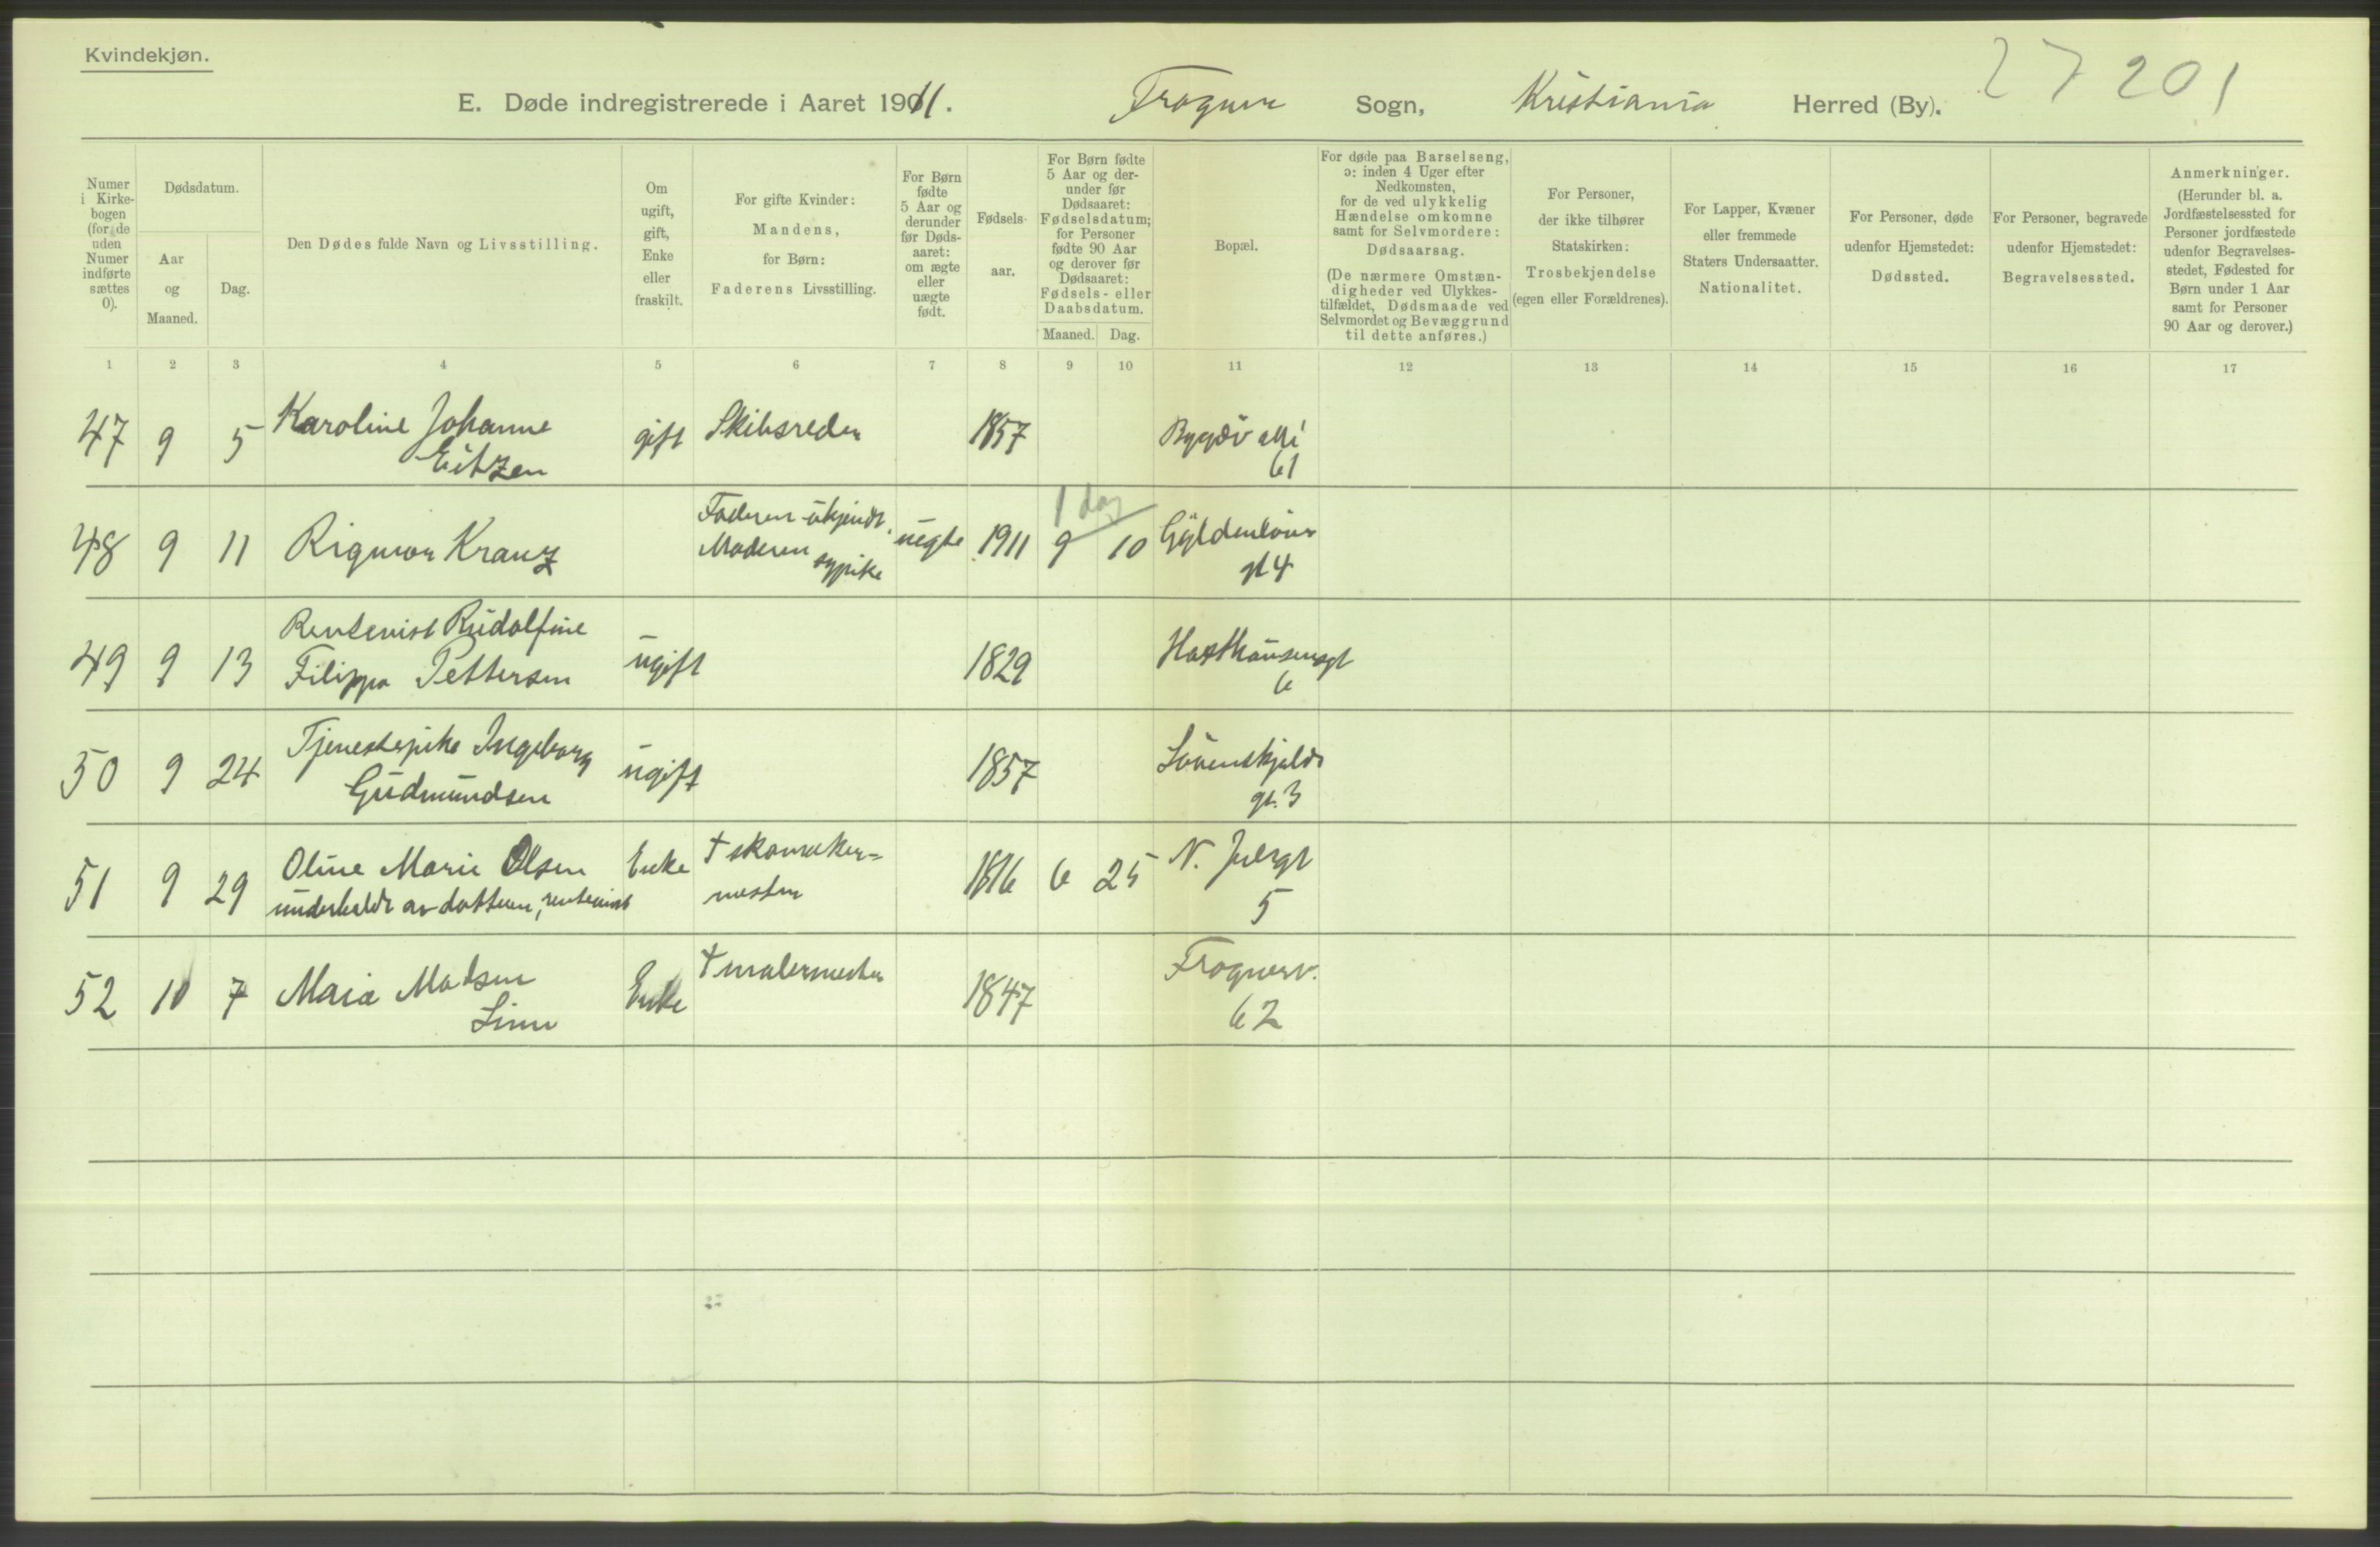 Kvindekjøn.
E. Døde indregistrerede i Aaret 1911.
Frogner Sogn, Kristiania Herred (By).
27 201
Numer i Kirkebogen (for de uden Numer indførte sættes 0).
Dødsdatum.
Aar og Maaned.
Dag.
Den Dødes fulde Navn og Livsstilling.
Om ugift, gift, Enke eller fraskilt.
For gifte Kvinder: Mandens, for Børn: Faderens Livsstilling.
For Børn fødte 5 Aar og derunder før Dødsaaret: om ægte eller uægte født.
Fødselsaar.
For Børn fødte 5 Aar og derunder før Dødsaaret: Fødselsdatum; for Personer fødte 90 Aar og derover før Dødsaaret: Fødsels- eller Daabsdatum.
Maaned. Dag.
Bopæl.
For døde paa Barselseng, ɔ: inden 4 Uger efter Nedkomsten, for de ved ulykkelig Hændelse omkomne samt for Selvmordere: Dødsaarsag.
(De nærmere Omstændigheder ved Ulykkestilfældet, Dødsmaade ved Selvmordet og Bevæggrund til dette anføres.)
For Personer, der ikke tilhører Statskirken: Trosbekjendelse (egen eller Forældrenes).
For Lapper, Kvæner eller fremmede Staters Undersaatter. Nationalitet.
For Personer, døde udenfor Hjemstedet: Dødssted.
For Personer, begravede udenfor Hjemstedet: Begravelsessted.
Anmerkninger.
(Herunder bl. a. Jordfæstelsessted for Personer jordfæstede udenfor Begravelsesstedet, Fødested for Børn under 1 Aar samt for Personer 90 Aar og derover.)
1 2 3 4 5 6 7 8 9 10 11 12 13 14 15 16 17
47 9 5 Karoline Johanne gift Skibsreder 1857 Bygdö allé
Eitzen 61
1 dag
48 9 11 Rigmor Kranz Faderen ukjendt. uegte 1911 9 10 Gyldenløves
Moderen sypike gt 4
Rentenist Rudolfine
49 9 13 Filippa Pettersen ugift 1829 Haxthausensgt
6
50 9 24 Tjenestepike Ingeborg ugift 1857 Løvenskjolds
Gudmundsen gt. 3
51 9 29 Oline Marie Olsen Enke † skomaker- 1816 6 25 N. Juelsgt
underholdt av datteren, rentenist mester 5
52 10 7 Maia Madsen Enke † malermester 1847 Frognerv.
Linn 62